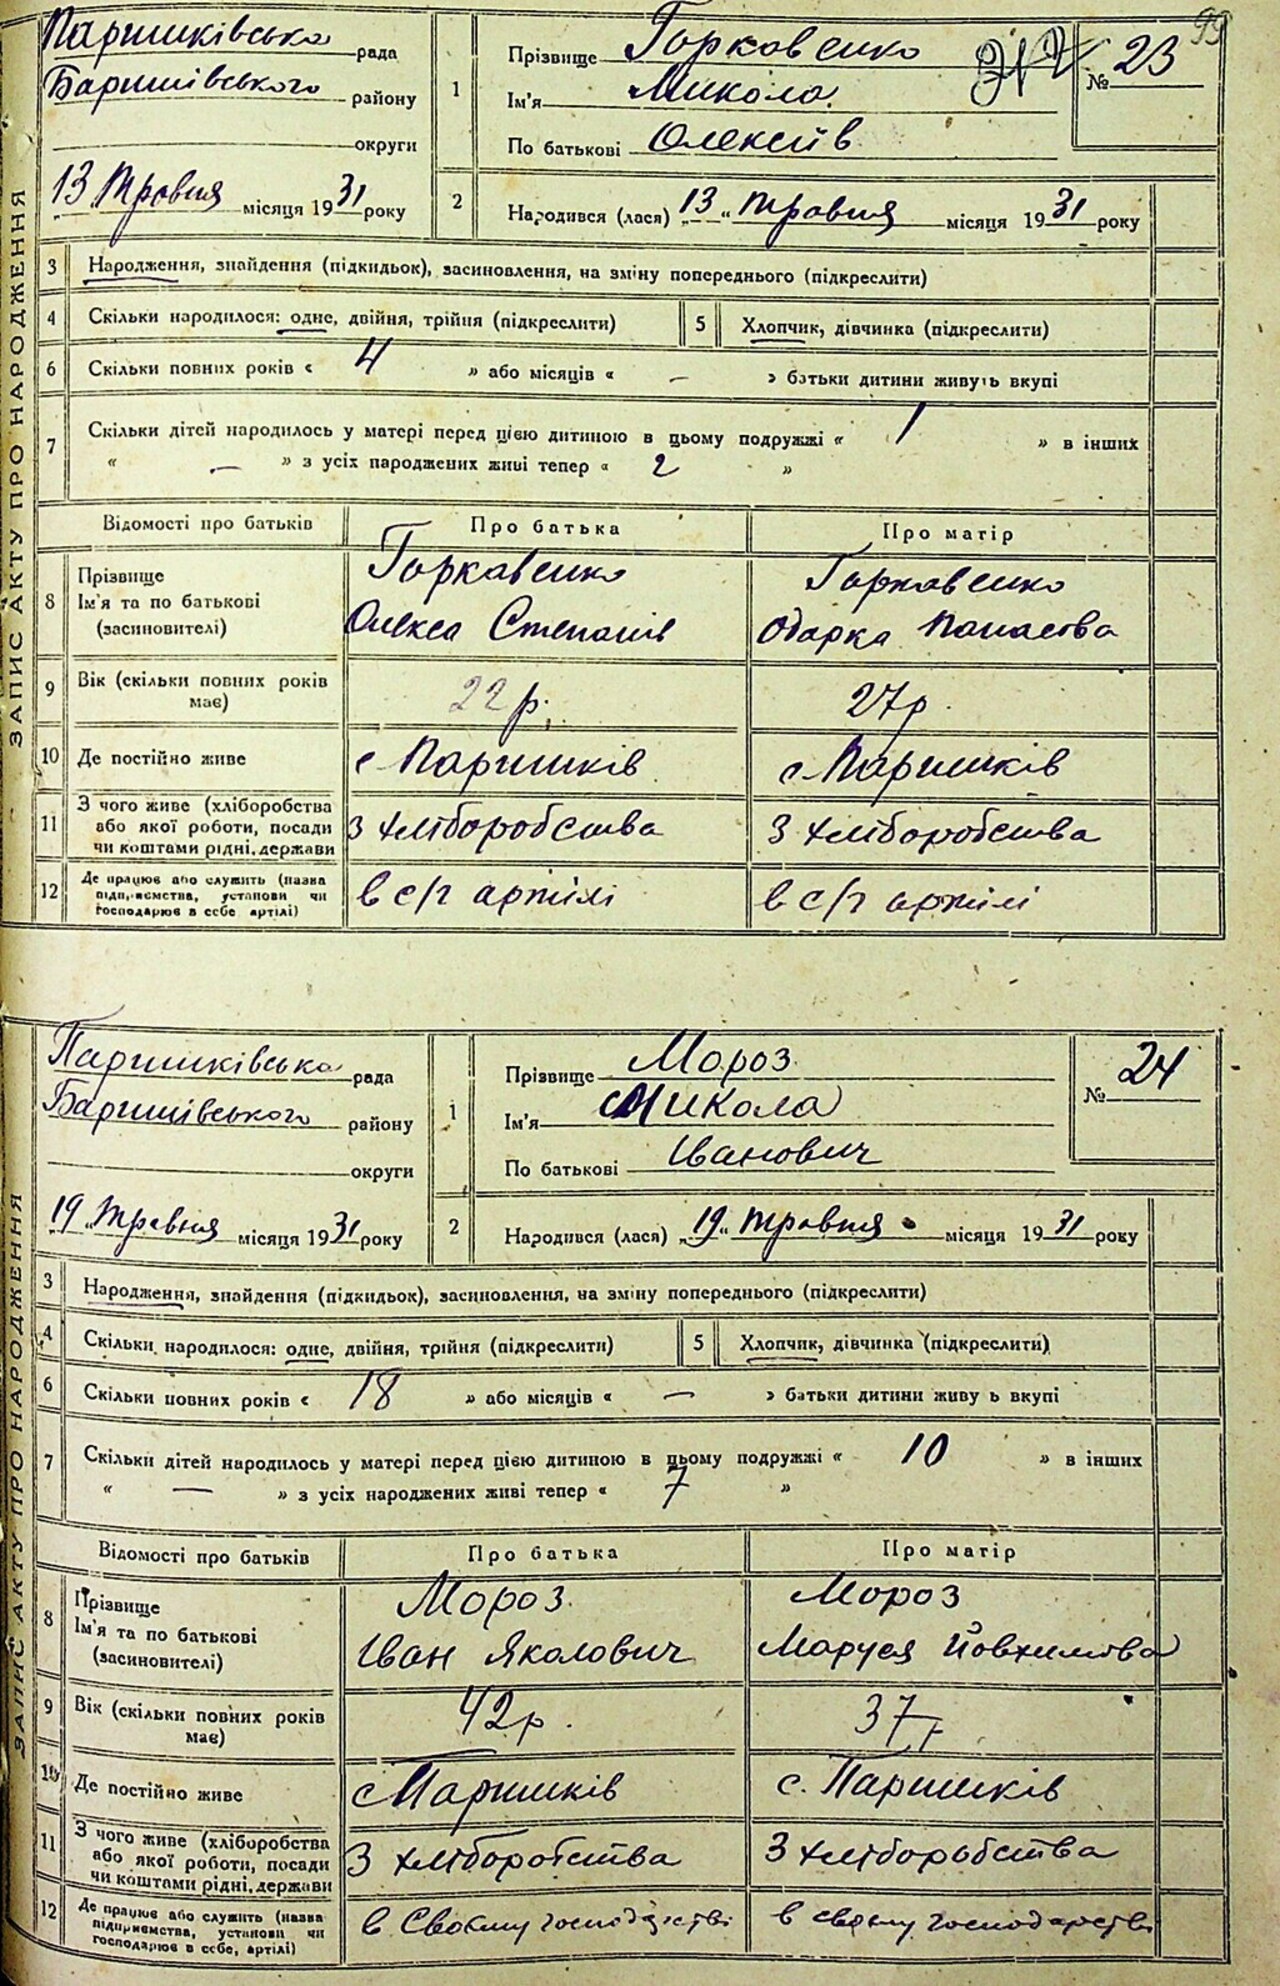 99
ЗАПИС АКТУ ПРО НАРОДЖЕННЯ
Паришківська рада
Баришівського району
округи
13 травня місяця 1931 року
1
Прізвище Горкавенко
Ім'я Микола
По батькові Олексіїв
№ 23
2
Народився (лася) „13“ травня місяця 1931 року
3 Народження, знайдення (підкидьок), засиновлення, на зміну попереднього (підкреслити)
4 Скільки народилося: одне, двійня, трійня (підкреслити) 5 Хлопчик, дівчинка (підкреслити)
6 Скільки повних років « 4 » або місяців « — » батьки дитини живуть вкупі
7 Скільки дітей народилось у матері перед цією дитиною в цьому подружжі « 1 » в інших
« — » з усіх народжених живі тепер « 2 »
Відомості про батьків Про батька Про матір
8 Прізвище Горкавенко Горкавенко
Ім'я та по батькові Олекса Степанів Одарка Панасова
(засиновителі)
9 Вік (скільки повних років має) 22 р. 27 р.
10 Де постійно живе с Паришків с. Паришків
11 З чого живе (хліборобства або якої роботи, посади чи коштами рідні, держави З хліборобства З хліборобства
12 Де працює або служить (назва підприємства, установи чи господарює в себе артілі) в с/г артілі в с/г артілі
ЗАПИС АКТУ ПРО НАРОДЖЕННЯ
Паришківська рада
Баришівського району
округи
19 „ травня місяця 1931 року
1
Прізвище Мороз
Ім'я Микола
По батькові Іванович
№ 24
2
Народився (лася) „19“ травня місяця 1931 року
3 Народження, знайдення (підкидьок), засиновлення, на зміну попереднього (підкреслити)
4 Скільки народилося: одне, двійня, трійня (підкреслити) 5 Хлопчик, дівчинка (підкреслити)
6 Скільки повних років « 18 » або місяців « — » батьки дитини живу ь вкупі
7 Скільки дітей народилось у матері перед цією дитиною в цьому подружжі « 10 » в інших
« — » з усіх народжених живі тепер « 7 »
Відомості про батьків Про батька Про матір
8 Прізвище Мороз Мороз
Ім'я та по батькові Іван Якалович Маруся Йовхимова
(засиновителі)
9 Вік (скільки повних років має) 42 р. 37 р
10 Де постійно живе с Паришків с. Паришків
11 З чого живе (хліборобства або якої роботи, посади чи коштами рідні, держави З хліборобства З хліборобства
12 Де працює або служить (назва підприємства, установи чи господарює в себе, артілі) в своєму господарстві в своєму господарстві